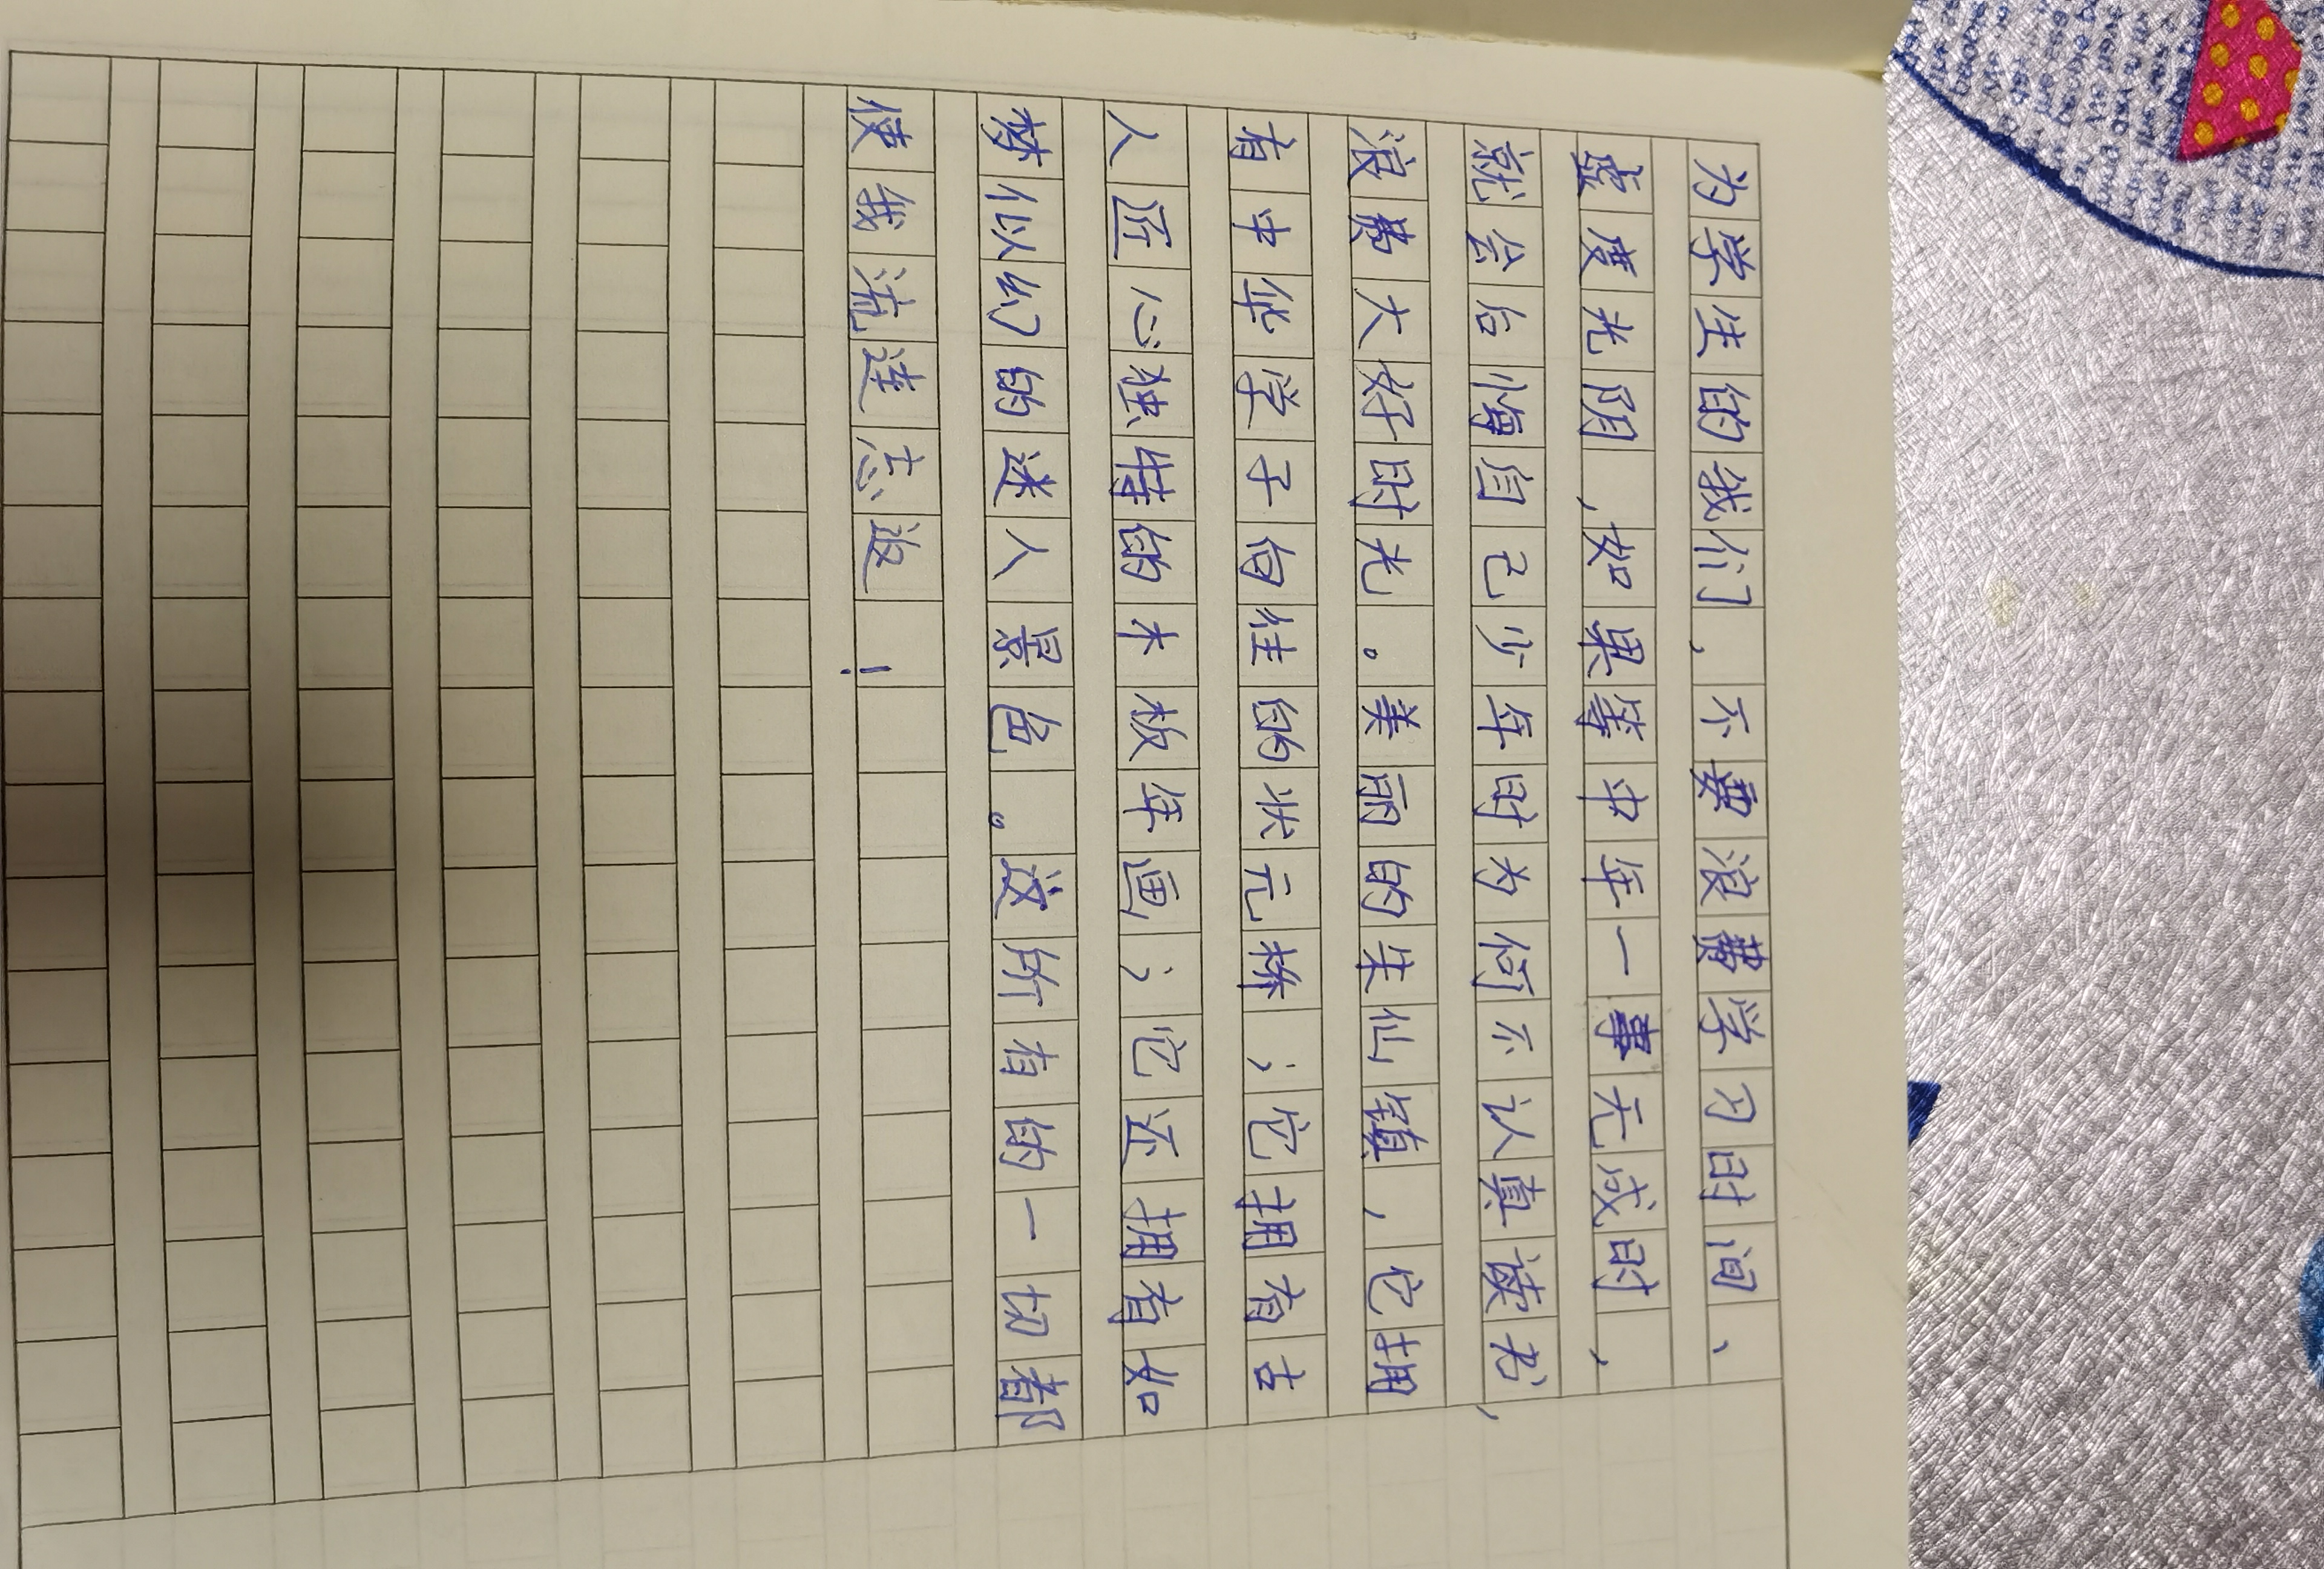 为学生的我们,不要浪费学习时间、
虚度光阴,如果等中年一事无成时,
就会后悔自己少年时为何不认真读书,
浪费大好时光。美丽的朱仙镇,它拥
有中华学子向往的状元桥;它拥有古
人匠心独特的木板年画;它还拥有如
梦似幻的迷人景色。这所有的一切都
使我流连忘返!